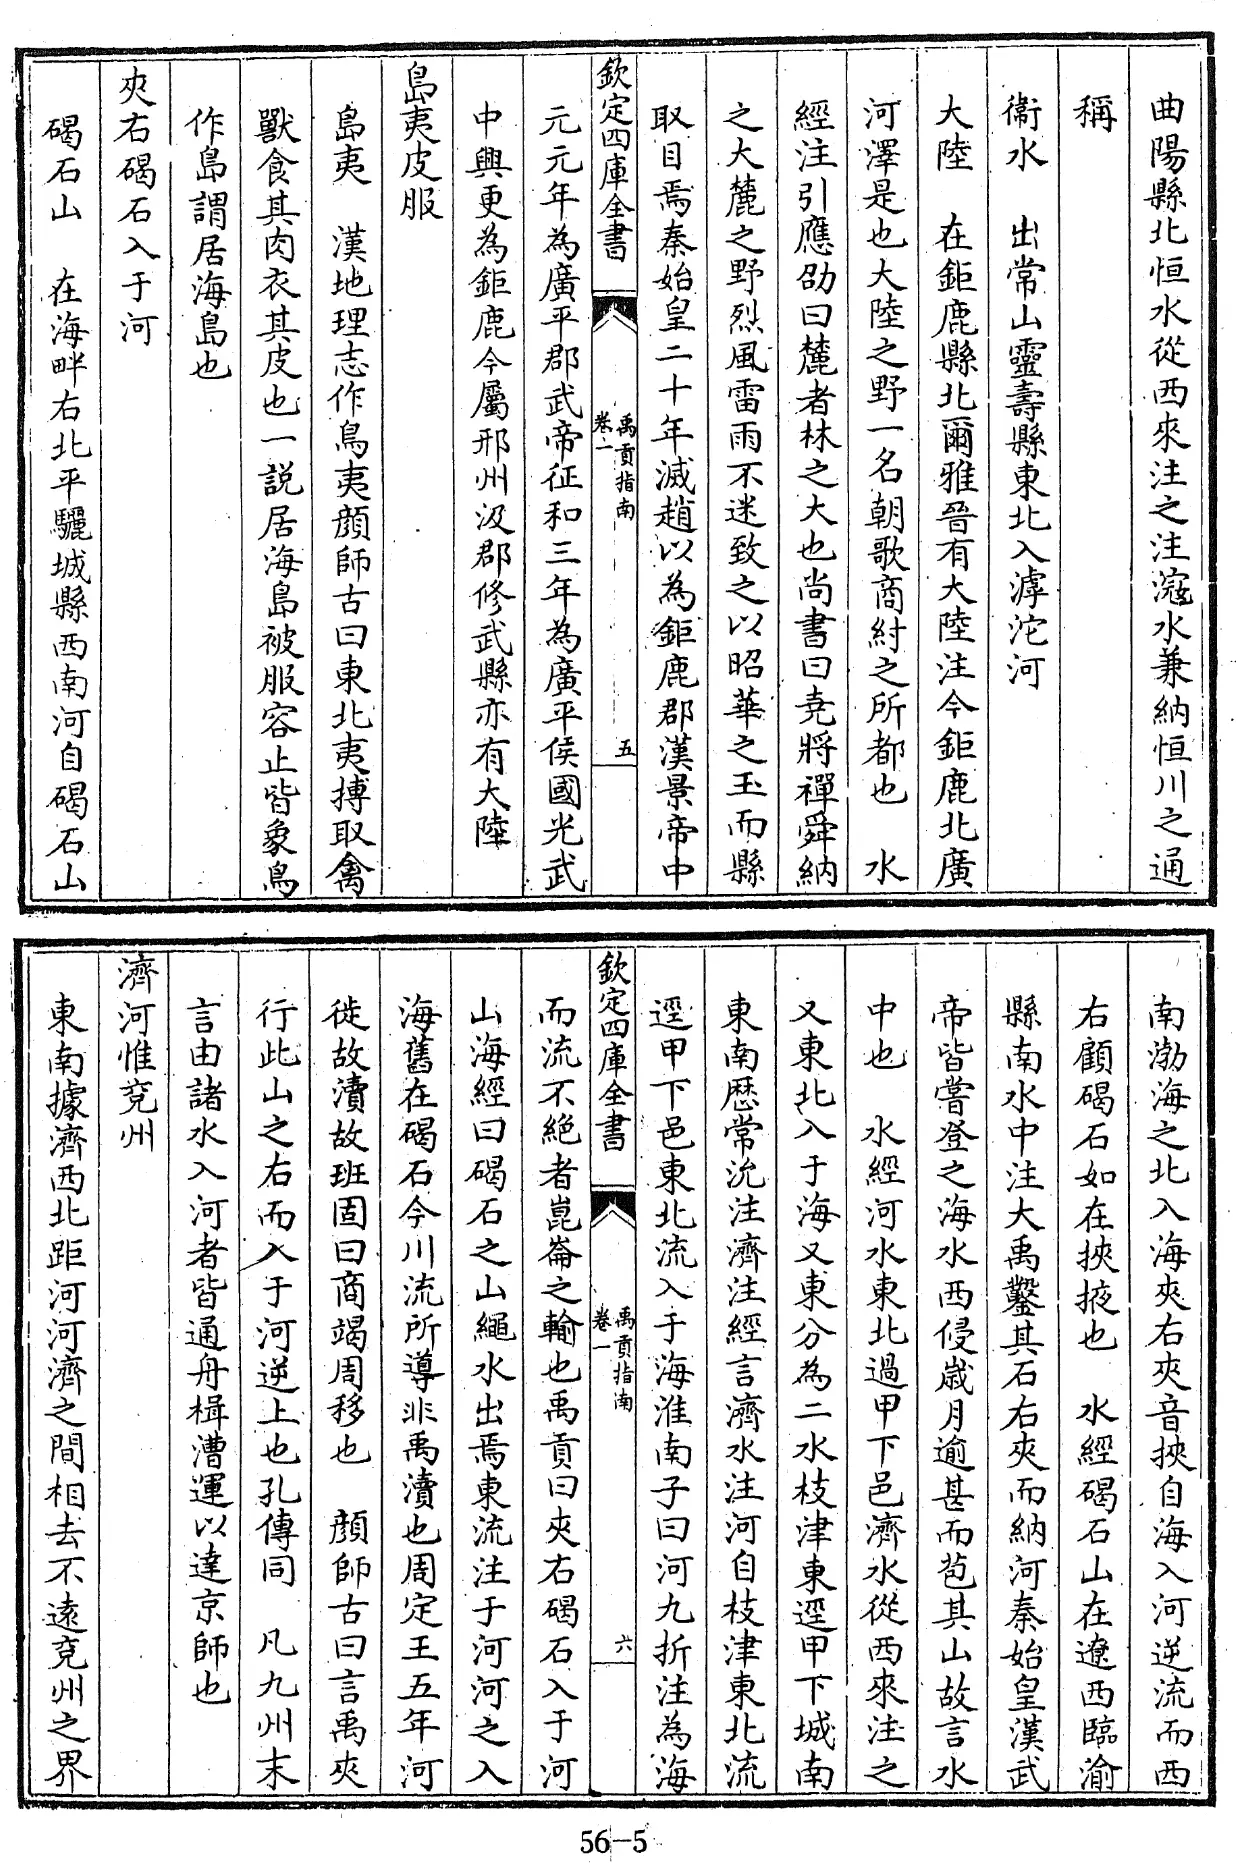 曲陽縣北恒水從西來注之注滱水兼納恒川之通
稱
衞水　出常山靈壽縣東北入滹沱河
大陸　在鉅鹿縣北爾雅晉有大陸注今鉅鹿北廣
河澤是也大陸之野一名朝歌商紂之所都也　水
經注引應劭曰麓者林之大也尚書曰堯將禪舜納
之大麓之野烈風雷雨不迷致之以昭華之玉而縣
取目焉秦始皇二十年滅趙以為鉅鹿郡漢景帝中
欽定四庫全書
禹貢指南
卷一
五
元元年為廣平郡武帝征和三年為廣平侯國光武
中興更為鉅鹿今屬邢州汲郡修武縣亦有大陸
島夷皮服
島夷　漢地理志作鳥夷顔師古曰東北夷搏取禽
獸食其肉衣其皮也一説居海島被服容止皆象鳥
作島謂居海島也
夾右碣石入于河
碣石山　在海畔右北平驪城縣西南河自碣石山
南渤海之北入海夾右夾音挾自海入河逆流而西
右顧碣石如在挾掖也　水經碣石山在遼西臨渝
縣南水中注大禹鑿其石右夾而納河秦始皇漢武
帝皆嘗登之海水西侵嵗月逾甚而苞其山故言水
中也　水經河水東北過甲下邑濟水從西來注之
又東北入于海又東分為二水枝津東逕甲下城南
東南歷常沇注濟注經言濟水注河自枝津東北流
逕甲下邑東北流入于海淮南子曰河九折注為海
欽定四庫全書
禹貢指南
卷一
六
而流不絶者崑崙之輸也禹貢曰夾右碣石入于河
山海經曰碣石之山繩水出焉東流注于河河之入
海舊在碣石今川流所導非禹瀆也周定王五年河
徙故瀆故班固曰商竭周移也　顔師古曰言禹夾
行此山之右而入于河逆上也孔傳同　凡九州末
言由諸水入河者皆通舟楫漕運以達京師也
濟河惟兗州
東南據濟西北距河河濟之間相去不遠兗州之界
56-5